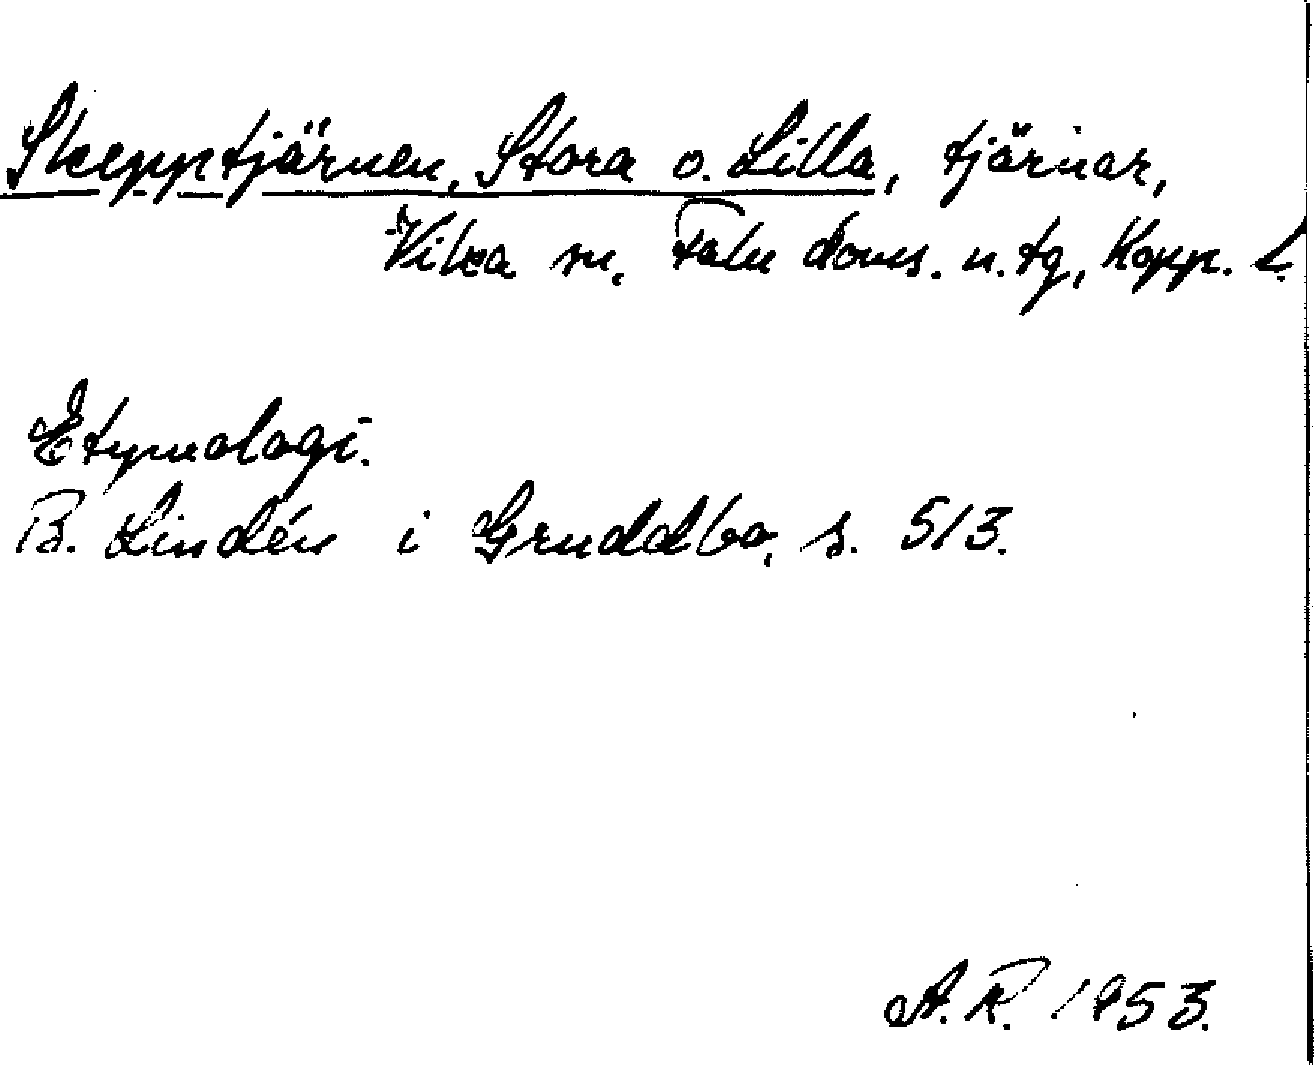 Skepptjärnen, Stora o. Lilla, tjärnar,
Vika sn, Falu doms. n. tg, Kopp. L.
Etymologi.
B. Lindén i Gruddbo, s. 513.
A. R. 1953.